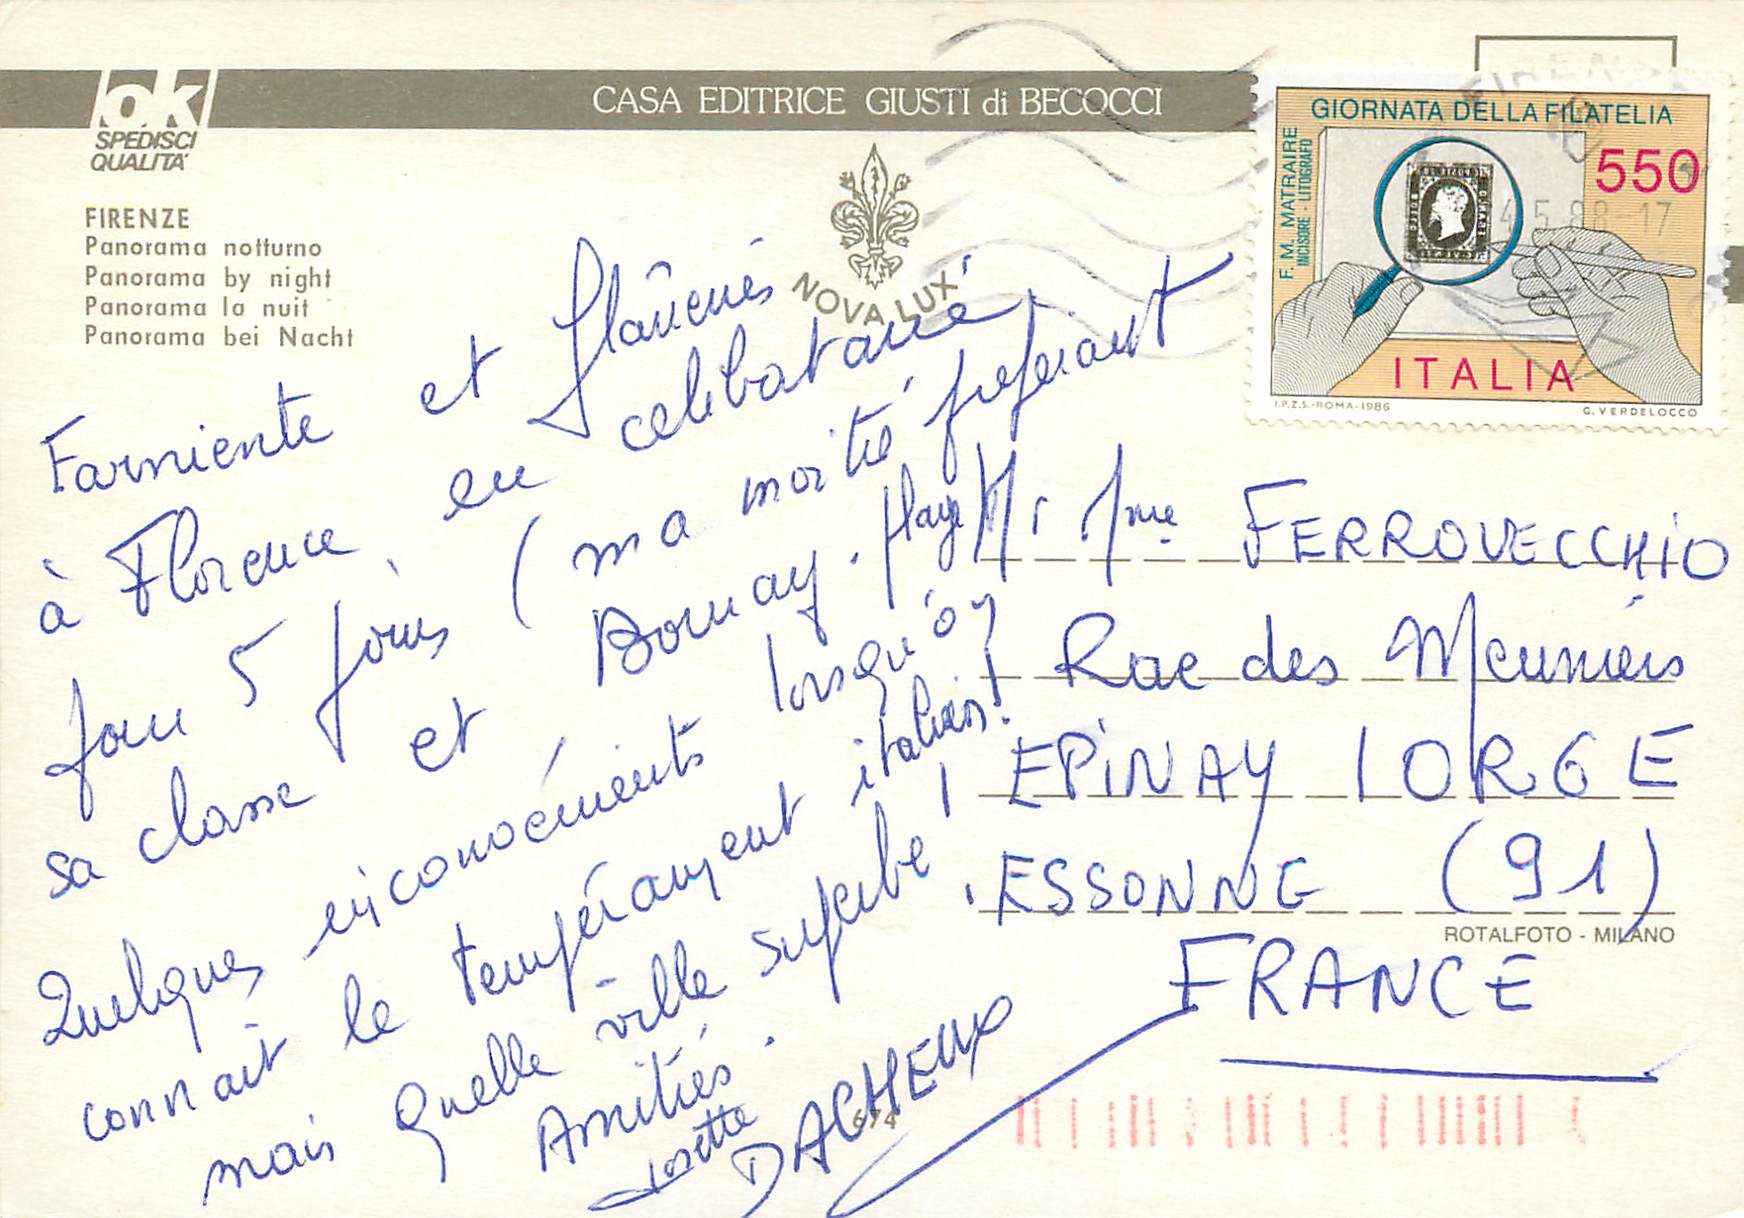 lok
SPEDISCI
QUALITA'
CASA EDITRICE GIUSTI di BECOCCI
FIRENZE
Panorama notturno
Panorama by night
Panorama la nuit
Panorama bei Nacht
NOVA LUX
GIORNATA DELLA FILATELIA
F. M. MATRAIRE
INCISORE - LITOGRAFO
550
4.5.88-17
ITALIA
I.P.Z.S.-ROMA-1986
G. VERDELOCCO
Farniente et flâneries
à Florence, en celibataire,
pour 5 jours (ma moitié préférant
sa classe et Bornay. plage
Quelques inconvénients lorsqu'on
connait le tempérament italien!
mais quelle ville superbe!
Amitiés.
Josette
DACHEUX
M. Mme FERROVECCHIO
Rue des Meuniers
EPINAY / ORGE
ESSONNE (91)
FRANCE
ROTALFOTO - MILANO
674